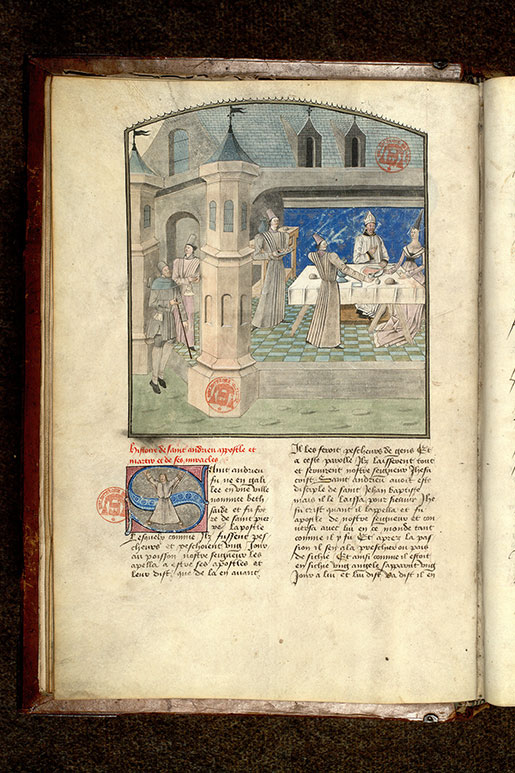 Histoire de saint andrieu apostle et
martir et de ses miracles
Saint andrieu
fu ne en gali
lee en une ville
nommee beth
saide et fu fre
re de saint pier
re lapostle
Lesquelz comme Ilz fussent pes
cheurs et peschoient ung Jour
au poisson nostre seigneur les
apella a estre ses apostles et
leur dist que de la en avant
Il les feroit pescheurs de gens Et
a ceste parolle Ilz laisserent tout
et sievirent nostre seigneur Jhesu
crist Saint andrieu avoit este
disciple de saint Jehan baptiste
mais il le laissa pour sievir Jhe
su crist quant il lapella et fu
apostle de nostre seigneur et con
versa avec lui en ce monde tant
comme il y fu Et apres la pas
sion il sen ala preschier ou pais
de sichie Et ainsi comme il estoit
en sichie ung angele sapparut ung
Jour a lui et lui dist Va dist il en